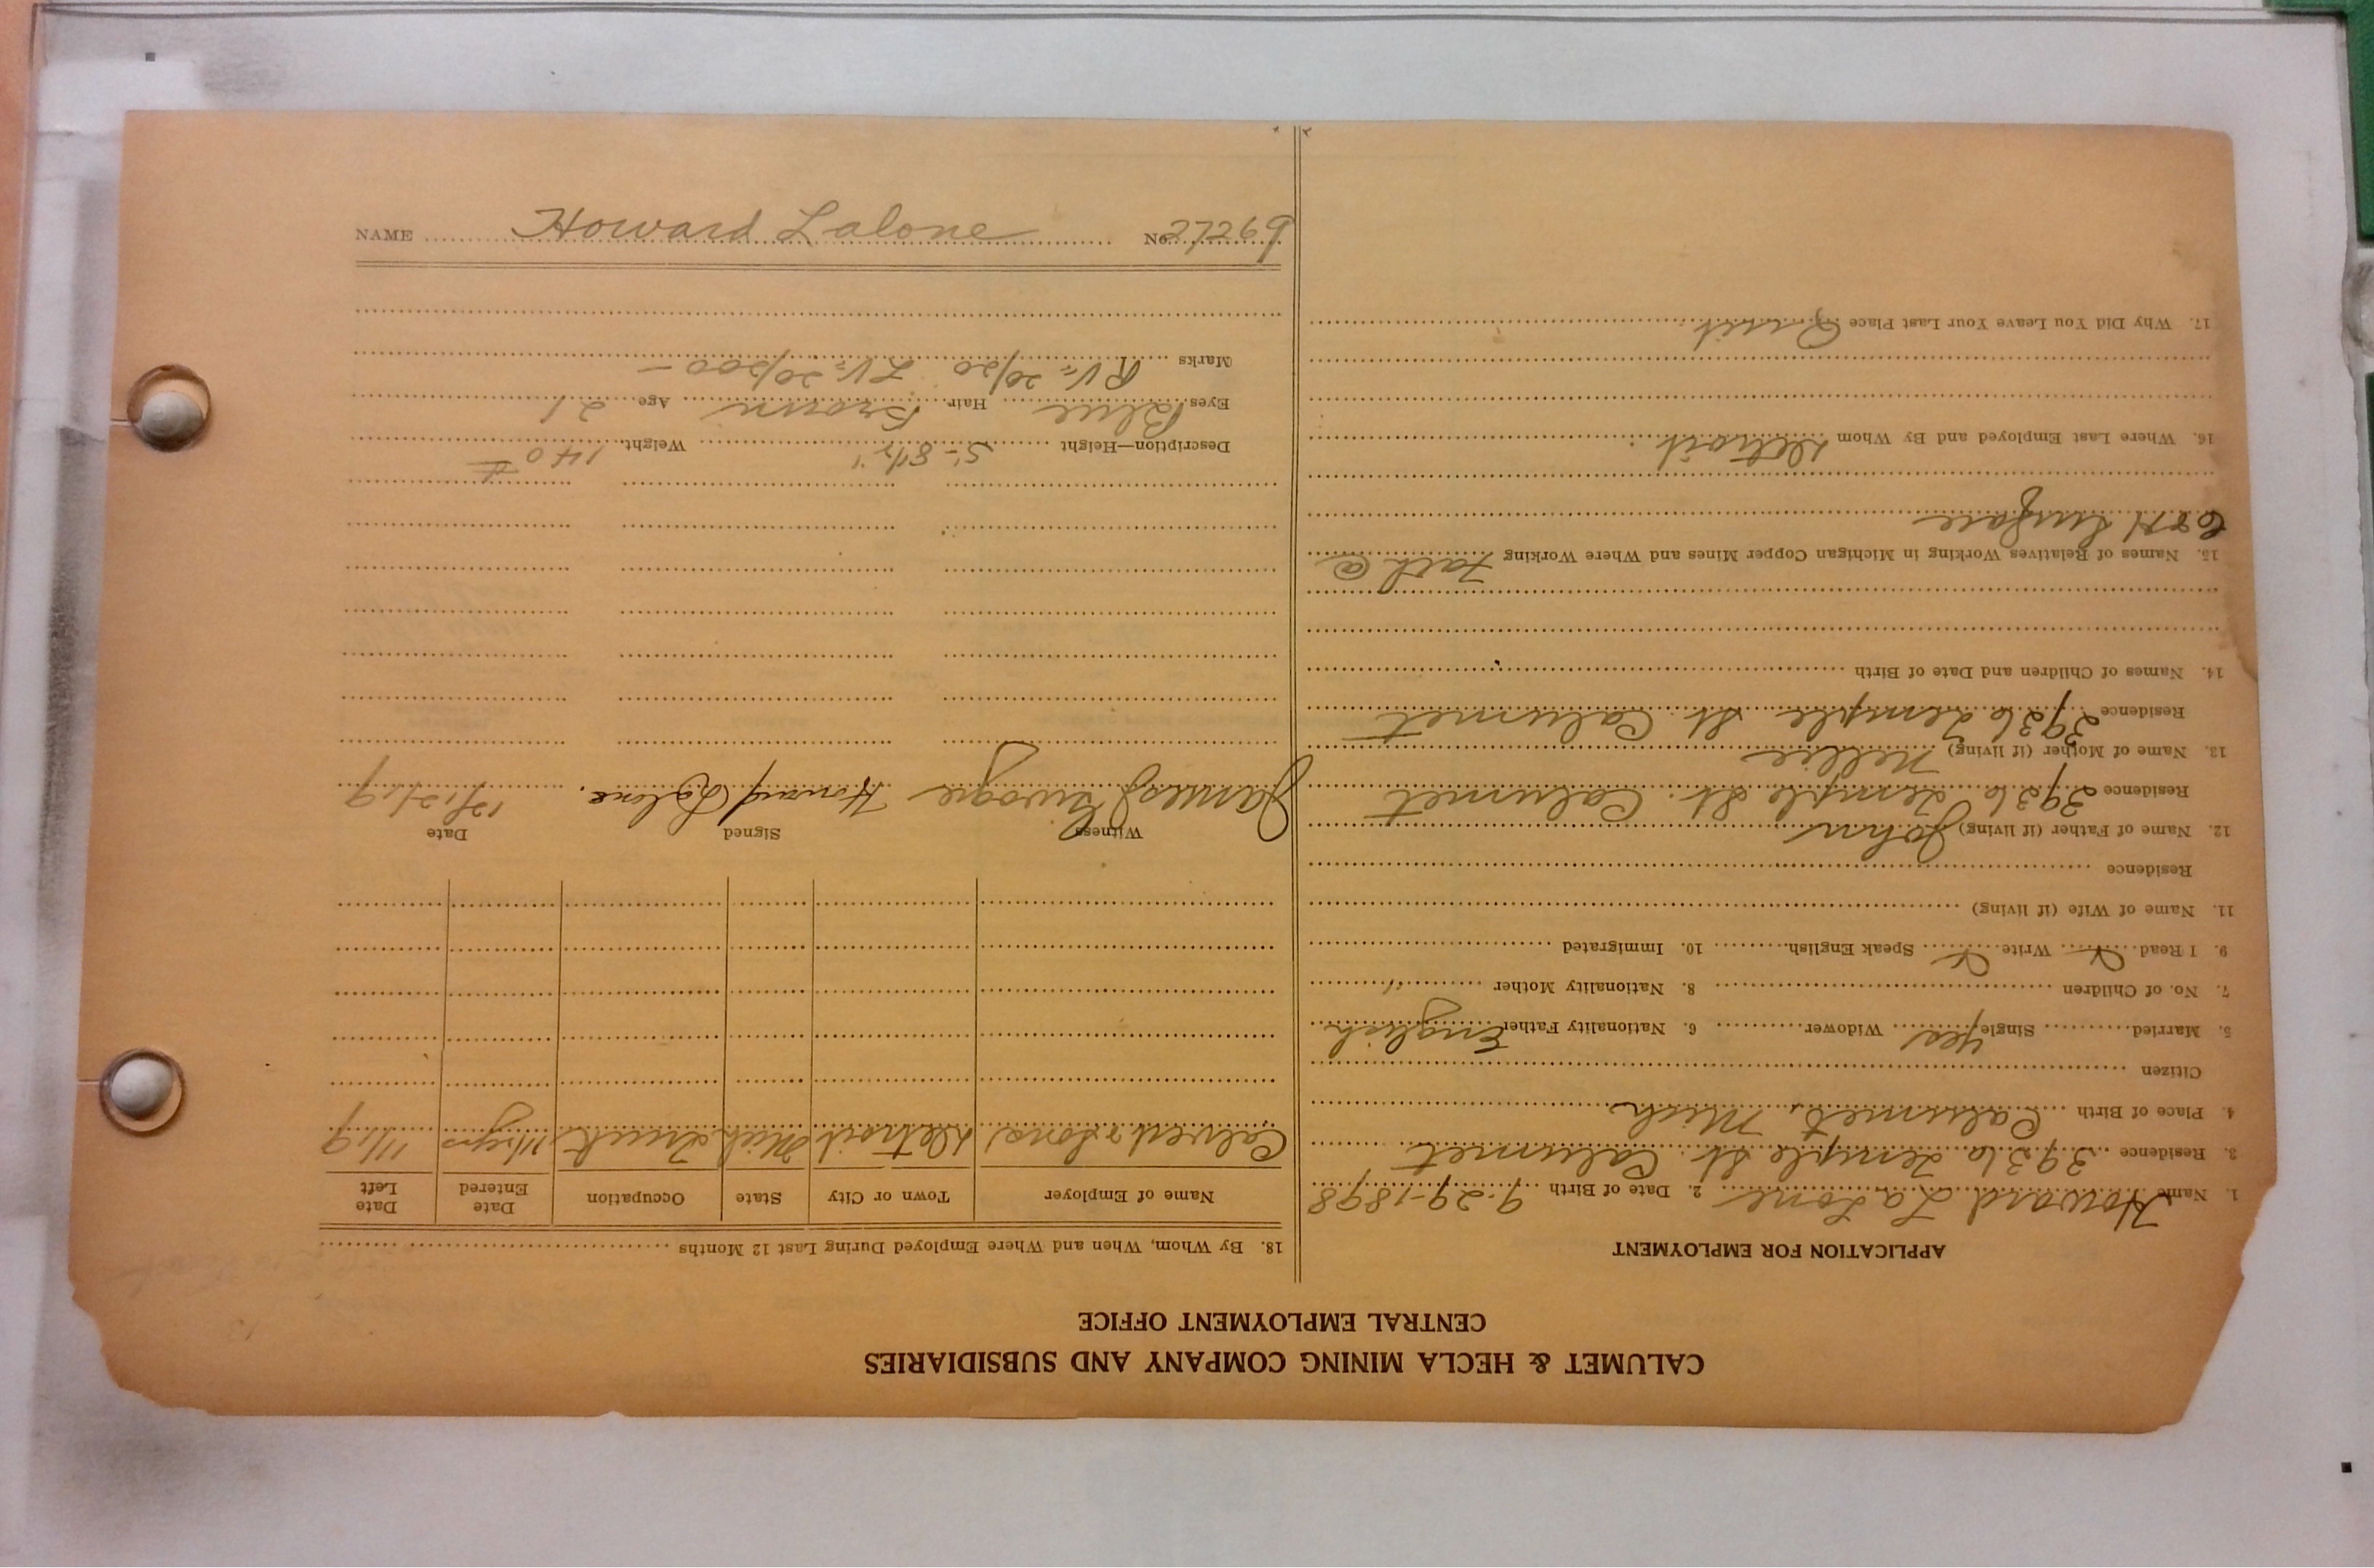 CALUMET & HECLA MINING COMPANY AND SUBSIDIARIES
CENTRAL EMPLOYMENT OFFICE
APPLICATION FOR EMPLOYMENT
1. Name Howard La Lone 2. Date of Birth 9-29-1898
3. Residence 3936 Temple St. Calumet
4. Place of Birth Calumet, Mich
Citizen
5. Married Single yes Widower 6. Nationality Father English
7. No. of Children 8. Nationality Mother "
9. I Read Write Speak English 10. Immigrated
11. Name of Wife (if living)
Residence
12. Name of Father (if living) John
Residence 3936 Temple St. Calumet
13. Name of Mother (if living) Nellie
Residence 3936 Temple St. Calumet
14. Names of Children and Date of Birth
15. Names of Relatives Working in Michigan Copper Mines and Where Working Fath @
C & H Surface
16. Where Last Employed and By Whom Detroit
17. Why Did You Leave Your Last Place Quit
18. By Whom, When and Where Employed During Last 12 Months
Name of Employer Town or City State Occupation Date Entered Date Left
Calvert & Sons Detroit Mich Truck 11/19
Witness Signed Date
James Howard Lalone. 12/12/19
Description—Height 5'-8½" Weight 140 #
Eyes Blue Hair Brown Age 21
Marks RV= 20/20 LV= 20/200 -
NAME Howard Lalone No. 27269